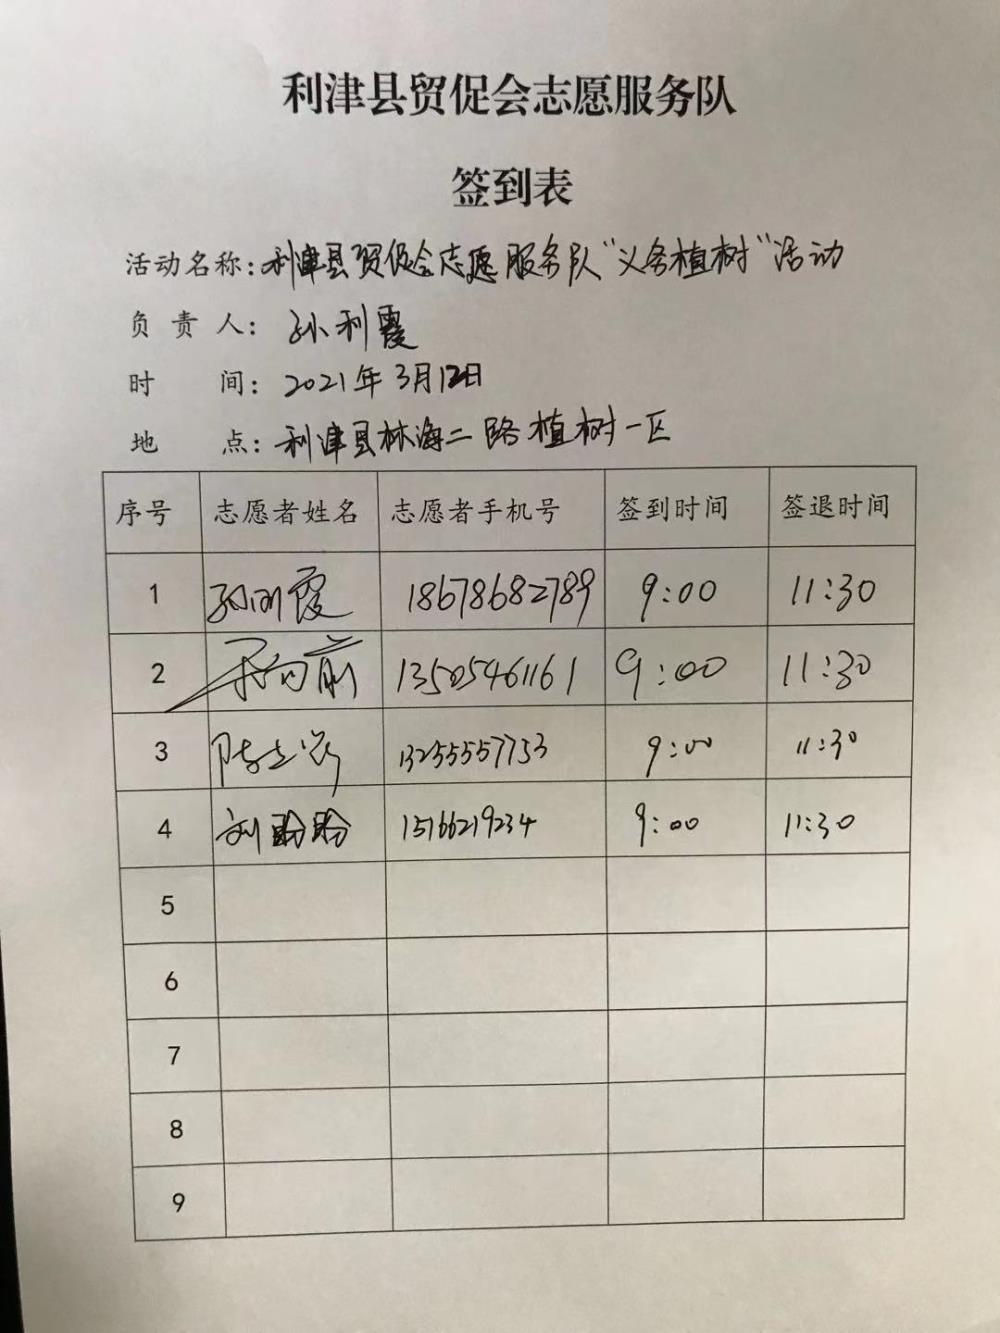 利津县贸促会志愿服务队
签到表
活动名称:利津县贸促会志愿服务队"义务植树"活动
负责人:孙利霞
时间:2021年3月12日
地点:利津县林海二路植树一区
序号 志愿者姓名 志愿者手机号 签到时间 签退时间
1 孙利霞 18678682789 9:00 11:30
2 向前 13505461161 9:00 11:30
3 陈 13255557753 9:00 11:30
4 刘盼盼 15166219234 9:00 11:30
5
6
7
8
9